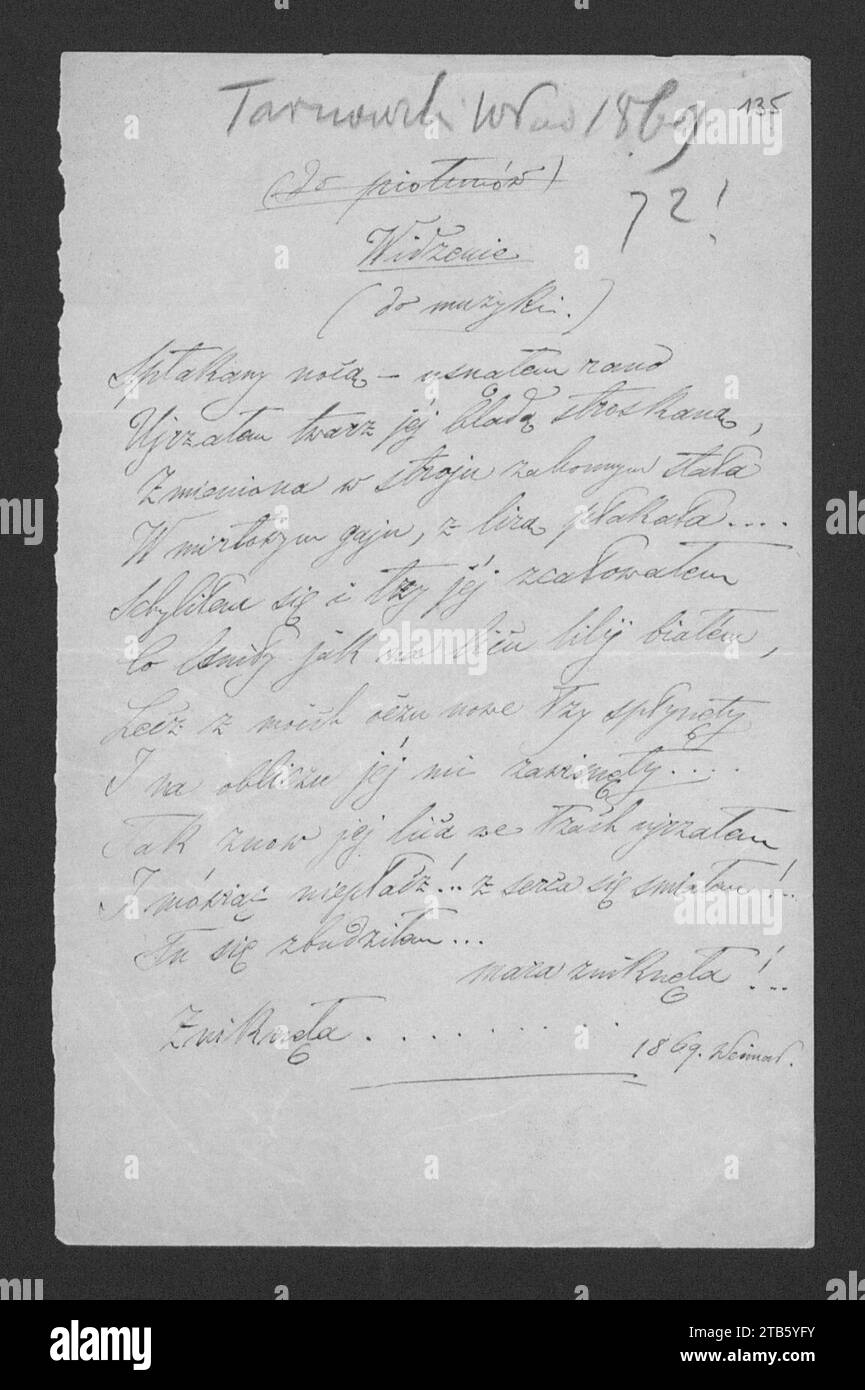 Tarnowski Wład 1869
135
(do piołunów)
72!
Widzenie
(do muzyki.)
Spłakany nocą – usnąłem rano
Ujrzałem twarz jéj bladą stroskaną,
Zmieniona w stroju żałobnym stała
W mirtowym gaju, z lirą płakała....
Schyliłem się i łzy jéj zcałowałem
Co lśniły jak na liciu lilij białém,
Lecz z moich oczu nowe łzy spłynęły
I na obliczu jéj mi zawisnęły....
Tak znow jéj lica we łzach ujrzałem
I mówiąc niepłacz!.. z serca się śmiałem!..
Tu się zbudziłem...
mara zniknęła!..
Zniknęła . . . . . . . . .
1869. Weimar.
alamy
Image ID: 2TB5YFY
www.alamy.com